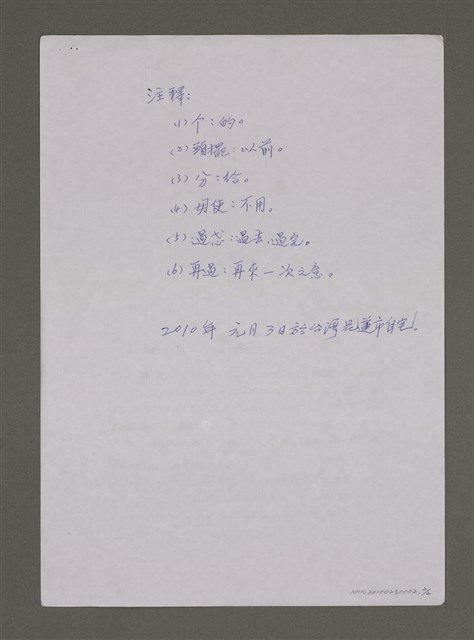 注釋:
(1)个:的。
(2)頭擺:以前。
(3)分:給。
(4)胡使:不用。
(5)過忒:過去、過完。
(6)再過:再來一次之意。
2010年元月3日於台灣花蓮市自宅。